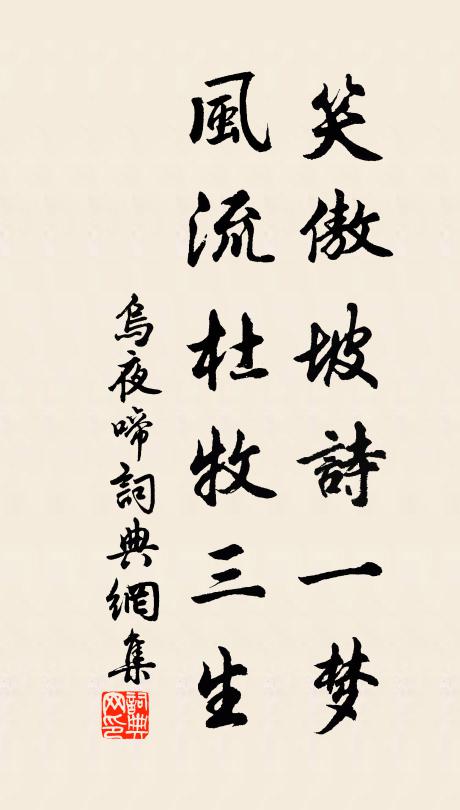 笑傲坡詩一梦
風流杜牧三生
烏夜啼詞典網集
詞典网印